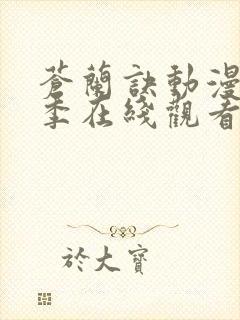 蒼蘭訣動漫
季在綫觀看
於大寶